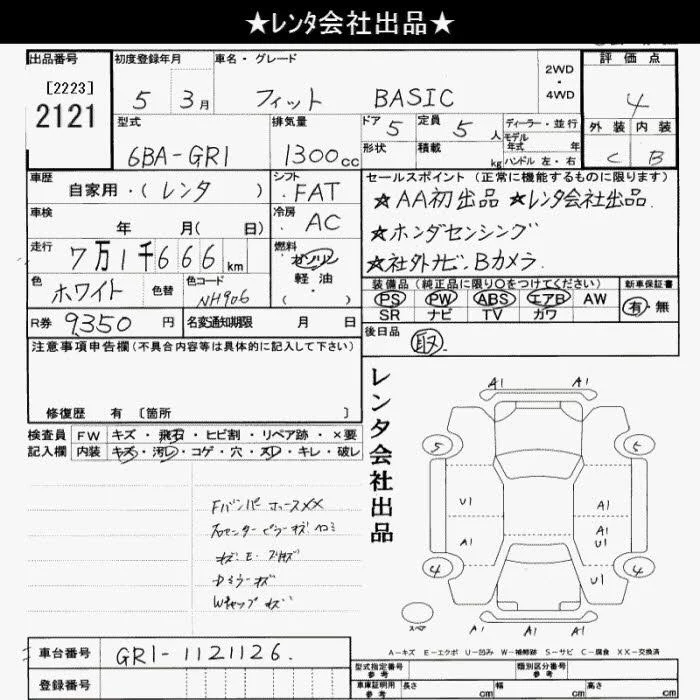 ★レンタ会社出品★
出品番号 初度登録年月 車名・グレード 2WD・4WD 評価点
[2223]
2121
5 3月 フィット BASIC 4
型式 排気量 ドア 5 定員 5人 ディーラー・並行 外装 内装
モデル年式 年
6BA-GR1 1300cc 形状 積載 kg ハンドル 左・右 C B
車歴 自家用・(レンタ) シフト FAT セールスポイント (正常に機能するものに限ります)
★AA初出品 ★レンタ会社出品
車検 年 月( 日) 冷房 AC
★ホンダセンシング
走行 7万1千666km 燃料 ガソリン
軽油
( ・ )
★社外ナビ、Bカメラ
色 ホワイト 色替 色コード NH906
装備品 (純正品に限り○をつけてください) 新車保証書
PS PW ABS エアB AW 有・無
SR ナビ TV カワ
R券 9350円 名変通知期限 月 日
後日品 取
注意事項申告欄(不具合内容等は具体的に記入して下さい)
修復歴 有 [箇所 ]
検査員 FW キズ・飛石・ヒビ割・リペア跡・×要
記入欄 内装 キズ・汚レ・コゲ・穴・スレ・キレ・破レ
レンタ会社出品
Fバンパー ホースXX
Dミラーキズ
Wキャップキズ
A1 A1
5 5
U1 A1
A1 A1
U1
4 U1 4
スペア
A1 A1 A1
A-キズ E-エクボ U-凹み W-補修跡 S-サビ C-腐食 XX-交換済
車台番号 GR1-1121126.
登録番号
型式指定番号 参考 類別区分番号 参考
車庫証明用 参考 長さ cm 幅 cm 高さ cm